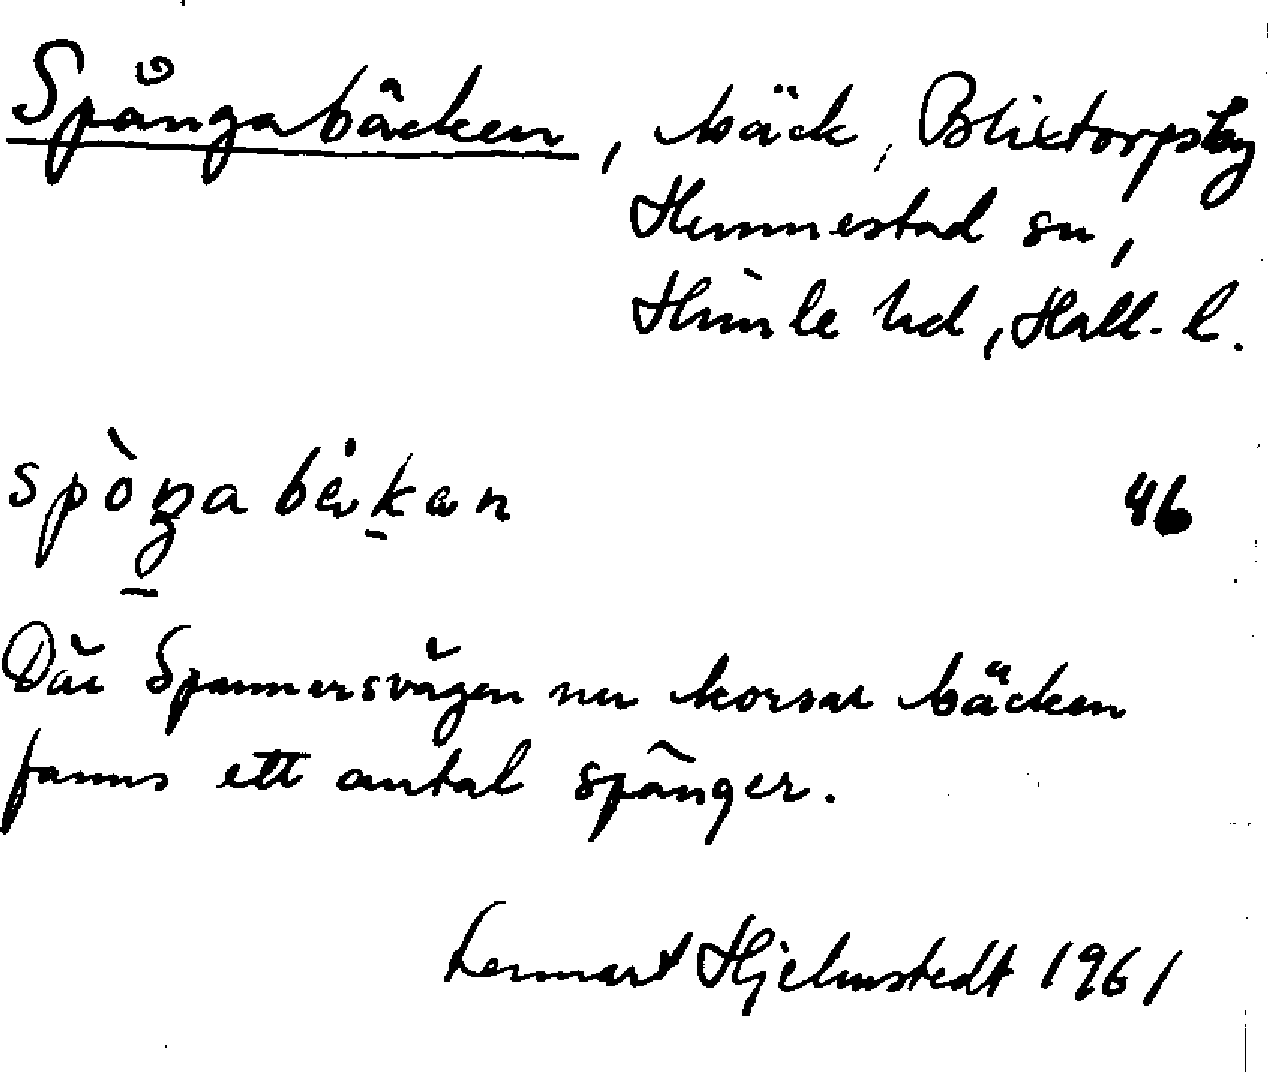 Spångabäcken, bäck, Blixtorps by
Hunnestad sn,
Himle hd, Hall. l.
spòŋabäkan 46
Där Spannarsvägen nu korsar bäcken
fanns ett antal spänger.
Lennart Hjelmstedt 1961